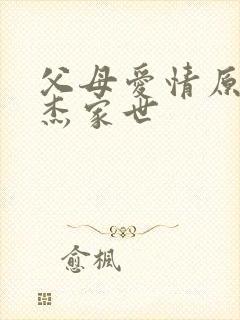 父母爱情原
杰家世
愈枫